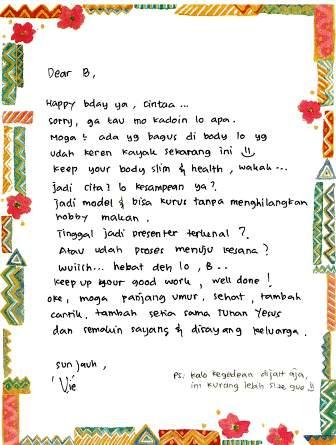 Dear B,
Happy bday ya, cintaa ...
sorry, ga tau mo kadoin lo apa.
Moga2 ada yg bagus di body lo yg
udah keren kayak sekarang ini
keep your body slim & health, wakak...
jadi cita2 lo kesampean ya?
jadi model & bisa kurus tanpa menghilangkan
hobby makan.
Tinggal jadi presenter terkenal?
Atau udah proses menuju kesana?
wuiish... hebat deh lo, B..
keep up your good work, well done!
oke, moga panjang umur, sehat, tambah
cantik, tambah setia sama Tuhan Yesus
dan semakin sayang & disayang keluarga.
sun jauh,
'Vie'
PS. kalo kegedean dijait aja,
ini kurang lebih size gue